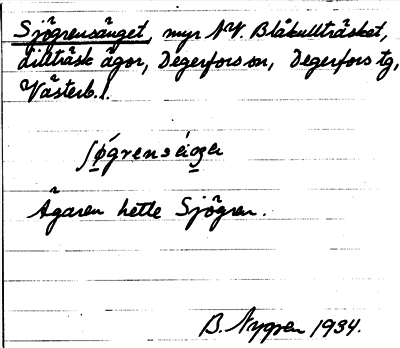 Sjögrensänget, myr N.V. Blåkullträsket,
Lillträsk ägor, Degerfors sn, Degerfors tg,
Västerb.l.
Ägaren hette Sjögren.
B. Nygren 1934.